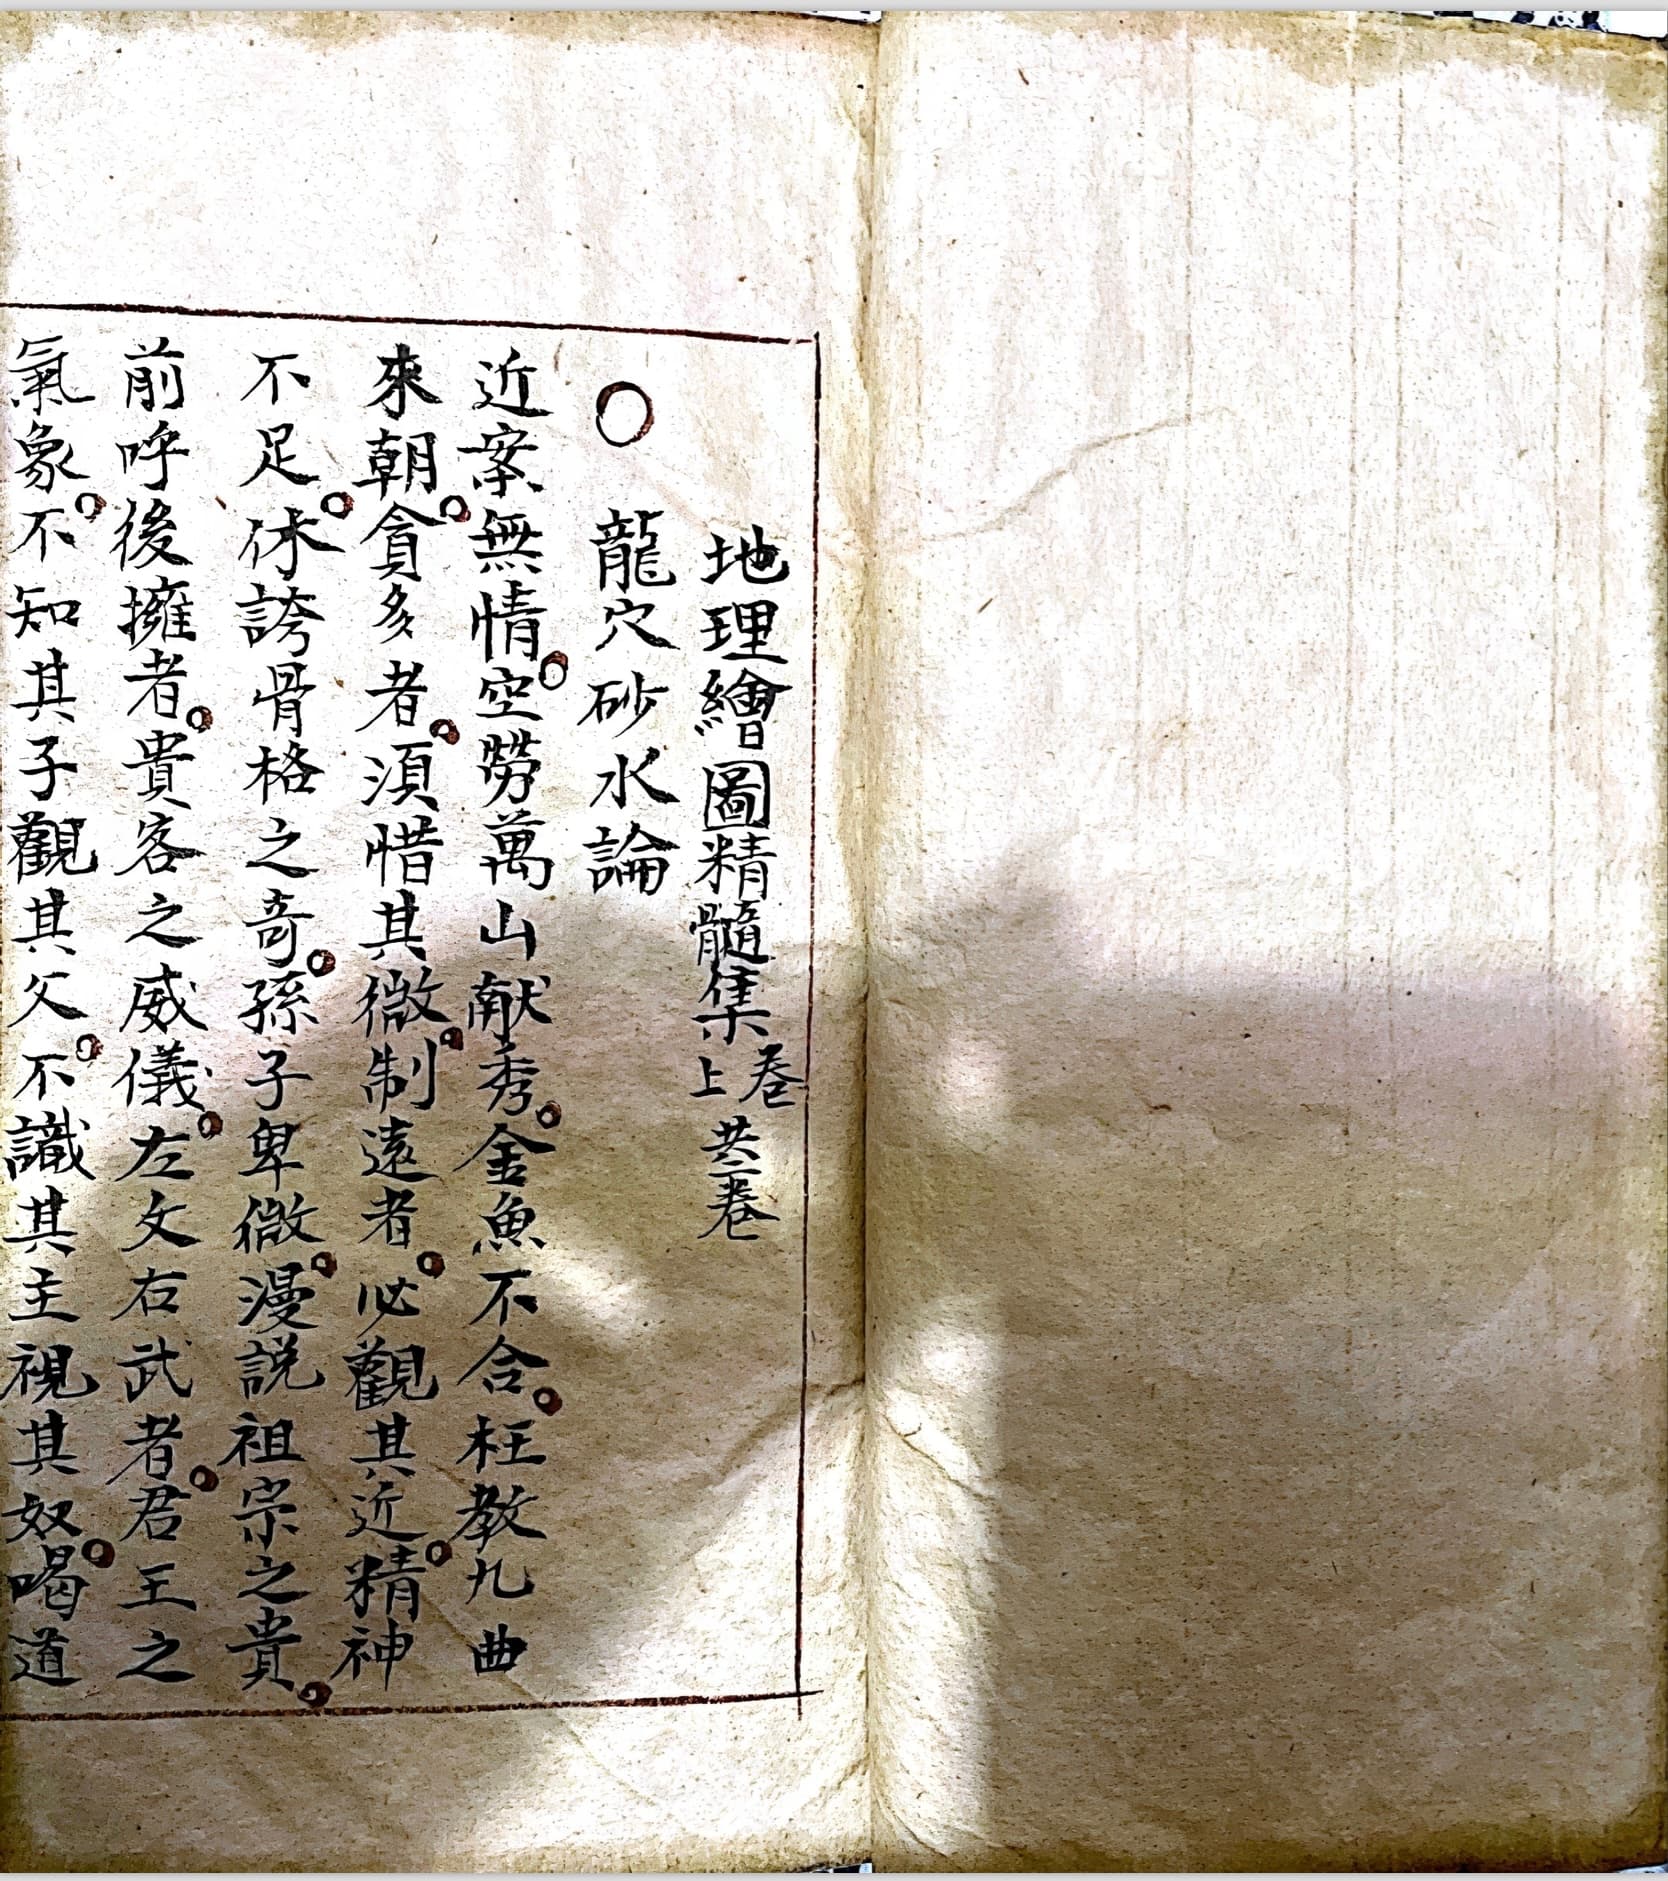 地理繪圖精髓集卷上 共二卷
○ 龍穴砂水論
近案無情○空勞萬山献秀○金魚不合○枉教九曲
來朝○貪多者○須惜其微○制遠者○必觀其近○精神
不足○休誇骨格之奇○孫子卑微○漫説祖宗之貴○
前呼後擁者○貴客之威儀○左文右武者○君王之
氣象○不知其子觀其父○不識其主視其奴○喝道